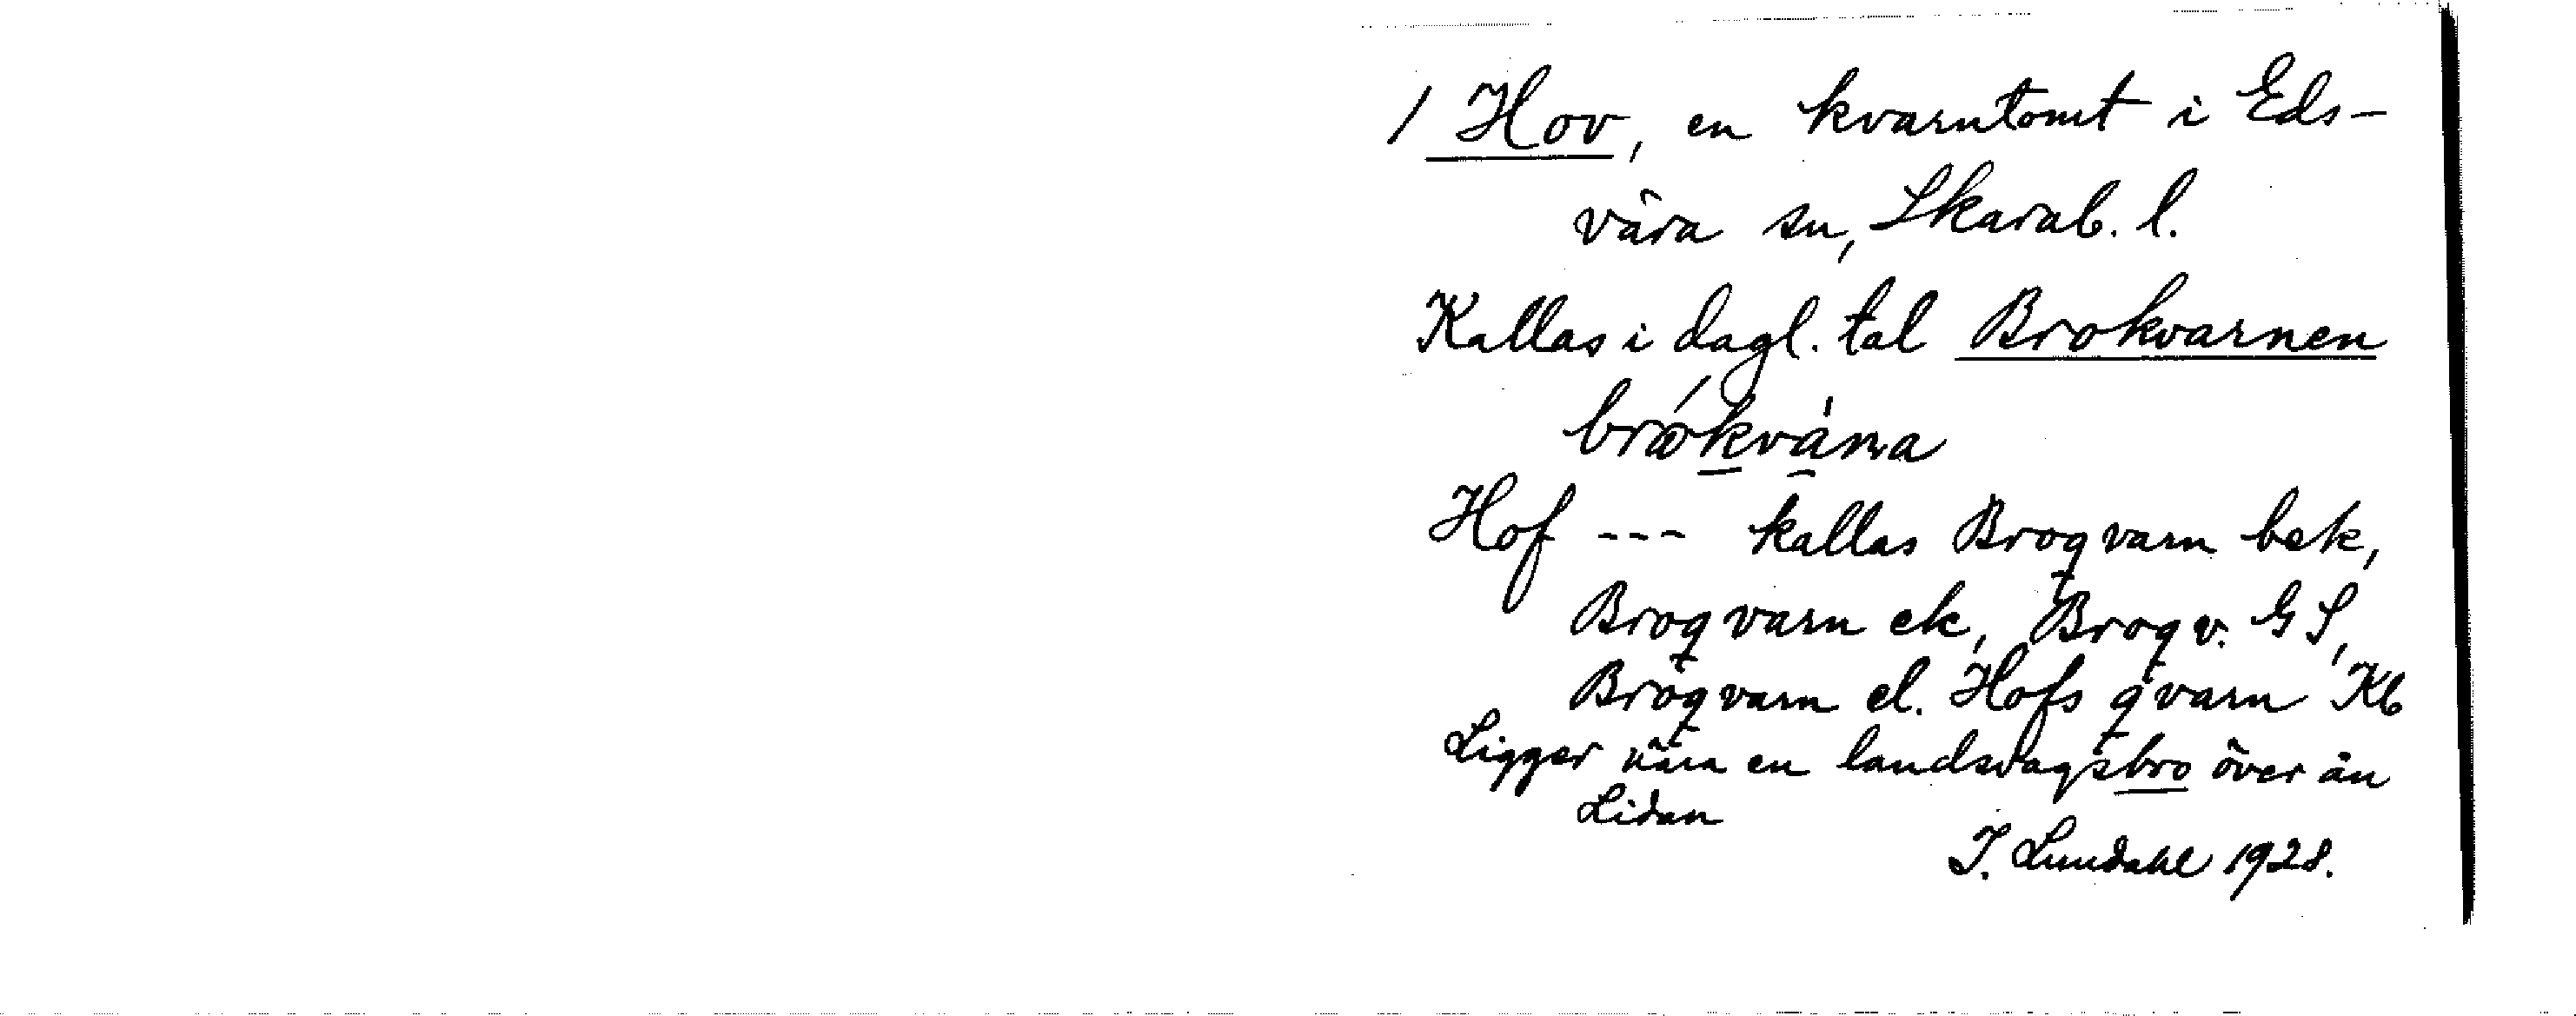 / Hov, en kvarntomt i Eds-
våra sn, Skarab. l.
Kallas i dagl. tal Brokvarnen
brókvàṇa
Hof --- kallas Broqvarn bek,
Broqvarn ek, Broqv. GS,
Broqvarn el. Hofs qvarn Kb
Ligger nära en landsvägsbro över ån
Lidan
I. Lundahl 1928.